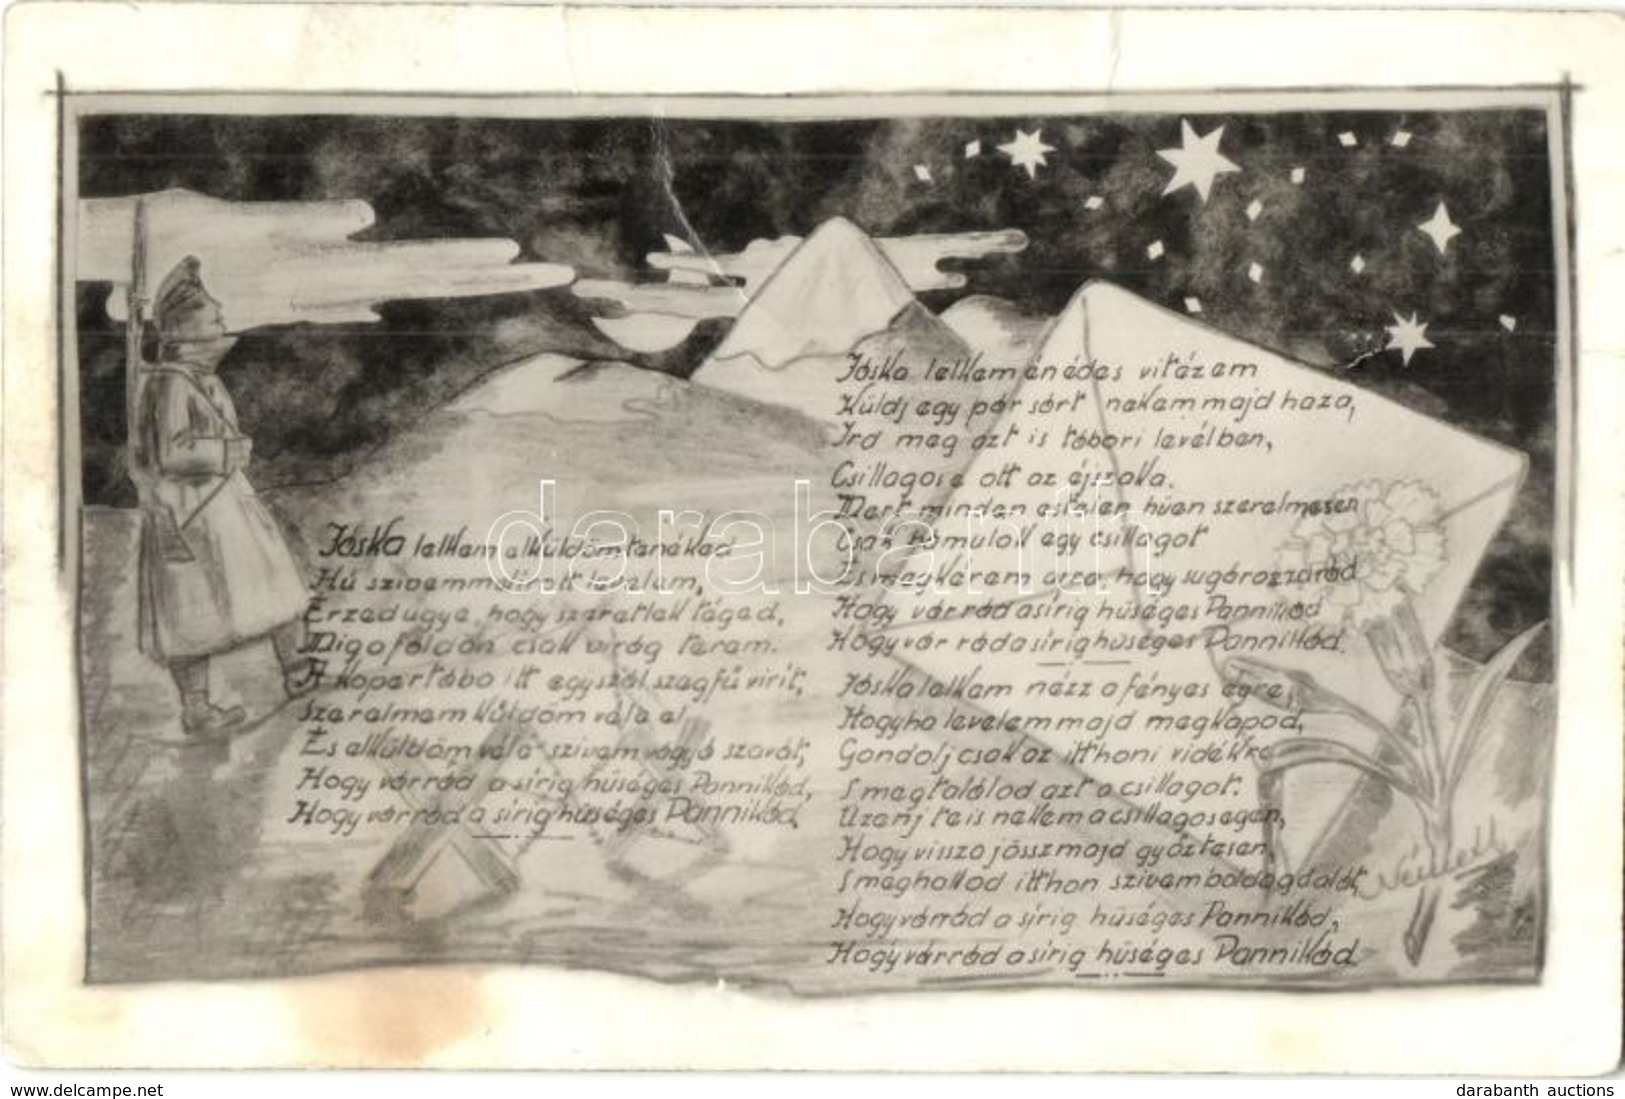 Jóska lelkem elküldöm tenéked
Hű szivemmel írott levelem,
Érzed ugye, hogy szeretlek téged,
Míg a földön csak virág terem.
A kopertába itt egy szál szegfű virít,
Szerelmem küldöm véle el,
És elküldöm véle szivem vágyó szavát,
Hogy vár rád a sírig hűséges Pannikád,
Hogy vár rád a sírig hűséges Pannikád.
Jóska lelkem én édes vitézem
Küldj egy pár sort nekem majd haza,
Ird meg azt is tábori levélben,
Csillagos e ott az éjszaka.
Mert minden estelen hűen szerelmesen
Csak bámulok egy csillagot
És megkérem arra, hogy sugározza rád
Hogy vár rád a sírig hűséges Pannikád
Hogy vár rád a sírig hűséges Pannikád.
Jóska lelkem nézz a fényes égre,
Hogyha levelem majd megkapod,
Gondolj csak az itthoni vidékre
S megtalálod azt a csillagot.
Üzenj te is nekem a csillagos egen,
Hogy vissza jössz majd győztesen
S meghallod itthon szivem boldog dalát,
Hogy vár rád a sírig hűséges Pannikád,
Hogy vár rád a sírig hűséges Pannikád.
Németh
darabanth
www.delcampe.net
darabanth auctions